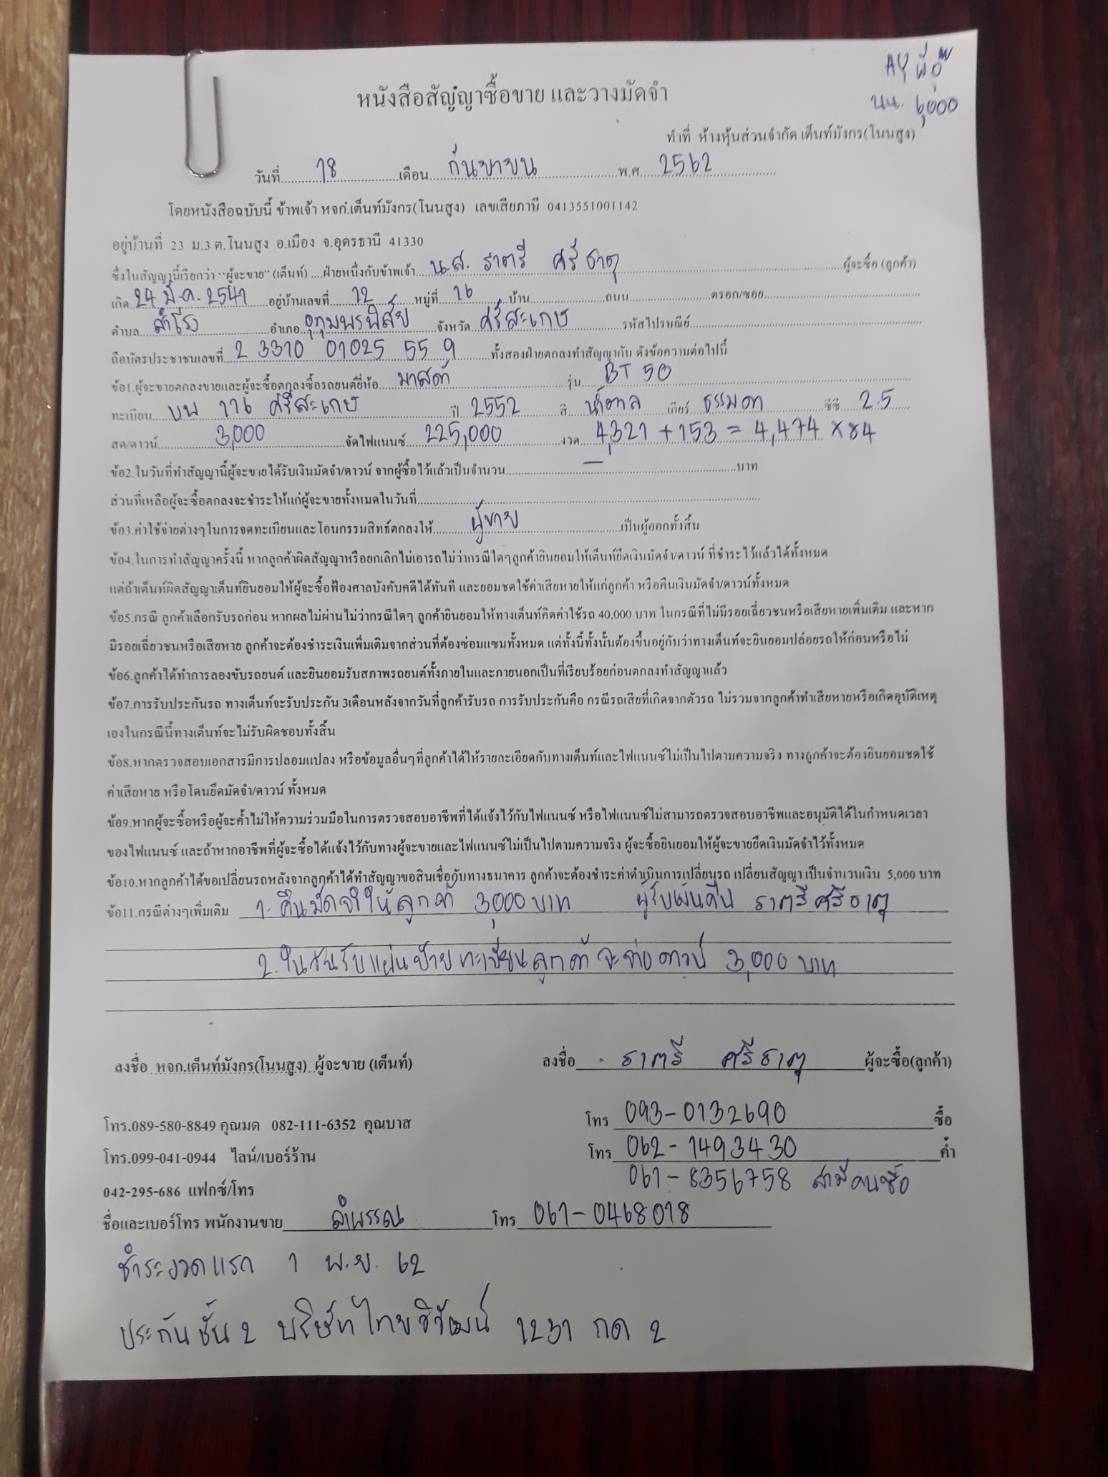 AY พี่อู๊
นน. 6,000
หนังสือสัญญาซื้อขาย และวางมัดจำ
ทำที่ ห้างหุ้นส่วนจำกัด เต็นท์มังกร(โนนสูง)
วันที่ 18 เดือน กันยายน พ.ศ. 2562
โดยหนังสือฉบับนี้ ข้าพเจ้า หจก.เต็นท์มังกร(โนนสูง) เลขเสียภาษี 0413551001142
อยู่บ้านที่ 23 ม.3 ต.โนนสูง อ.เมือง จ.อุดรธานี 41330
ซึ่งในสัญญานี้เรียกว่า "ผู้จะขาย" (เต็นท์) ....ฝ่ายหนึ่งกับข้าพเจ้า น.ส. ราตรี ศรีธาตุ ผู้จะซื้อ (ลูกค้า)
เกิด 24 มี.ค. 2541 อยู่บ้านเลขที่ 12 หมู่ที่ 16 บ้าน ถนน ตรอก/ซอย
ตำบล สำโรง อำเภอ อุทุมพรพิสัย จังหวัด ศรีสะเกษ รหัสไปรษณีย์
ถือบัตรประชาชนเลขที่ 2 3310 01025 55 9 ทั้งสองฝ่ายตกลงทำสัญญากัน ดังข้อความต่อไปนี้
ข้อ1.ผู้จะขายตกลงขายและผู้จะซื้อตกลงซื้อรถยนต์ยี่ห้อ มาสด้า รุ่น BT 50
ทะเบียน บพ 776 ศรีสะเกษ ปี 2552 สี น้ำตาล เกียร์ ธรรมดา ซีซี 2.5
สด/ดาวน์ 3,000 จัดไฟแนนซ์ 225,000 งวด 4,321 + 153 = 4,474 x 84
ข้อ2.ในวันที่ทำสัญญานี้ผู้จะขายได้รับเงินมัดจำ/ดาวน์ จากผู้ซื้อไว้แล้วเป็นจำนวน บาท
ส่วนที่เหลือผู้จะซื้อตกลงจะชำระให้แก่ผู้จะขายทั้งหมดในวันที่
ข้อ3.ค่าใช้จ่ายต่างๆในการจดทะเบียนและโอนกรรมสิทธิ์ตกลงให้ ผู้ขาย เป็นผู้ออกทั้งสิ้น
ข้อ4.ในการทำสัญญาครั้งนี้ หากลูกค้าผิดสัญญาหรือยกเลิกไม่เอารถไม่ว่ากรณีใดๆลูกค้ายินยอมให้เต็นท์ยึดเงินมัดจำ/ดาวน์ ที่ชำระไว้แล้วได้ทั้งหมด
แต่ถ้าเต็นท์ผิดสัญญาเต็นท์ยินยอมให้ผู้จะซื้อฟ้องศาลบังคับคดีได้ทันที และยอมชดใช้ค่าเสียหายให้แก่ลูกค้า หรือคืนเงินมัดจำ/ดาวน์ทั้งหมด
ข้อ5.กรณี ลูกค้าเลือกรับรถก่อน หากผลไม่ผ่านไม่ว่ากรณีใดๆ ลูกค้ายินยอมให้ทางเต็นท์คิดค่าใช้รถ 40,000 บาท ในกรณีที่ไม่มีรอยเฉี่ยวชนหรือเสียหายเพิ่มเติม และหาก
มีรอยเฉี่ยวชนหรือเสียหาย ลูกค้าจะต้องชำระเงินเพิ่มเติมจากส่วนที่ต้องซ่อมแซมทั้งหมด แต่ทั้งนี้ทั้งนั้นต้องขึ้นอยู่กับว่าทางเต็นท์จะยินยอมปล่อยรถให้ก่อนหรือไม่
ข้อ6.ลูกค้าได้ทำการลองขับรถยนต์ และยินยอมรับสภาพรถยนต์ทั้งภายในและภายนอกเป็นที่เรียบร้อยก่อนตกลงทำสัญญาแล้ว
ข้อ7.การรับประกันรถ ทางเต็นท์จะรับประกัน 3เดือนหลังจากวันที่ลูกค้ารับรถ การรับประกันคือ กรณีรถเสียที่เกิดจากตัวรถ ไม่รวมจากลูกค้าทำเสียหายหรือเกิดอุบัติเหตุ
เองในกรณีนี้ทางเต็นท์จะไม่รับผิดชอบทั้งสิ้น
ข้อ8.หากตรวจสอบเอกสารมีการปลอมแปลง หรือข้อมูลอื่นๆที่ลูกค้าได้ให้รายละเอียดกับทางเต็นท์และไฟแนนซ์ไม่เป็นไปตามความจริง ทางลูกค้าจะต้องยินยอมชดใช้
ค่าเสียหาย หรือโดนยึดมัดจำ/ดาวน์ ทั้งหมด
ข้อ9.หากผู้จะซื้อหรือผู้จะค้ำไม่ให้ความร่วมมือในการตรวจสอบอาชีพที่ได้แจ้งไว้กับไฟแนนซ์ หรือไฟแนนซ์ไม่สามารถตรวจสอบอาชีพและอนุมัติได้ในกำหนดเวลา
ของไฟแนนซ์ และถ้าหากอาชีพที่ผู้จะซื้อได้แจ้งไว้กับทางผู้จะขายและไฟแนนซ์ไม่เป็นไปตามความจริง ผู้จะซื้อยินยอมให้ผู้จะขายยึดเงินมัดจำไว้ทั้งหมด
ข้อ10.หากลูกค้าได้ขอเปลี่ยนรถหลังจากลูกค้าได้ทำสัญญาขอสินเชื่อกับทางธนาคาร ลูกค้าจะต้องชำระค่าดำเนินการเปลี่ยนรถ เปลี่ยนสัญญา เป็นจำนวนเงิน 5,000 บาท
ข้อ11.กรณีต่างๆเพิ่มเติม 1. คืนมัดจำให้ลูกค้า 3,000 บาท ผู้รับเงินคืน ราตรี ศรีธาตุ
2. ในวันรับแผ่นป้ายทะเบียนลูกค้าจะจ่ายดาวน์ 3,000 บาท
ลงชื่อ หจก.เต็นท์มังกร(โนนสูง) ผู้จะขาย (เต็นท์) ลงชื่อ ราตรี ศรีธาตุ ผู้จะซื้อ(ลูกค้า)
โทร.089-580-8849 คุณมด 082-111-6352 คุณบาส โทร 093-0132690 ซื้อ
โทร.099-041-0944 ไลน์/เบอร์ร้าน โทร 062-1493430 ค้ำ
042-295-686 แฟกซ์/โทร 061-8356758 สามีคนซื้อ
ชื่อและเบอร์โทร พนักงานขาย ลำพรรณ โทร 061-0468018
ชำระงวดแรก 1 พ.ย. 62
ประกันชั้น 2 บริษัทไทยวิวัฒน์ 1231 กด 2